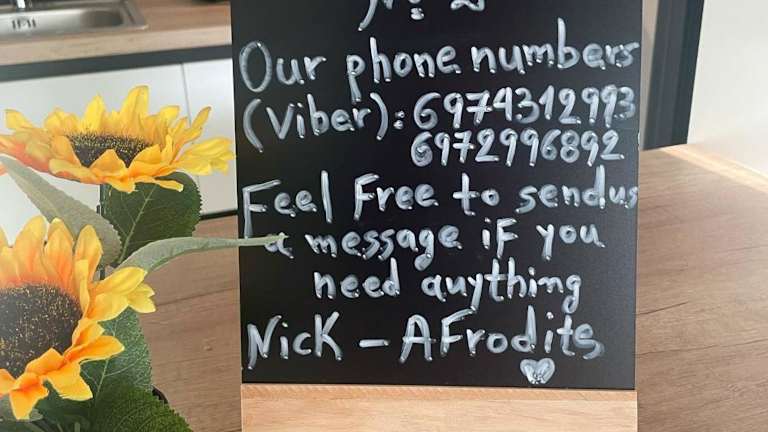 №: 2
Our phone numbers
(Viber): 6974312993
6972996892
Feel Free to send us
a message if you
need anything
Nick - AFrodits